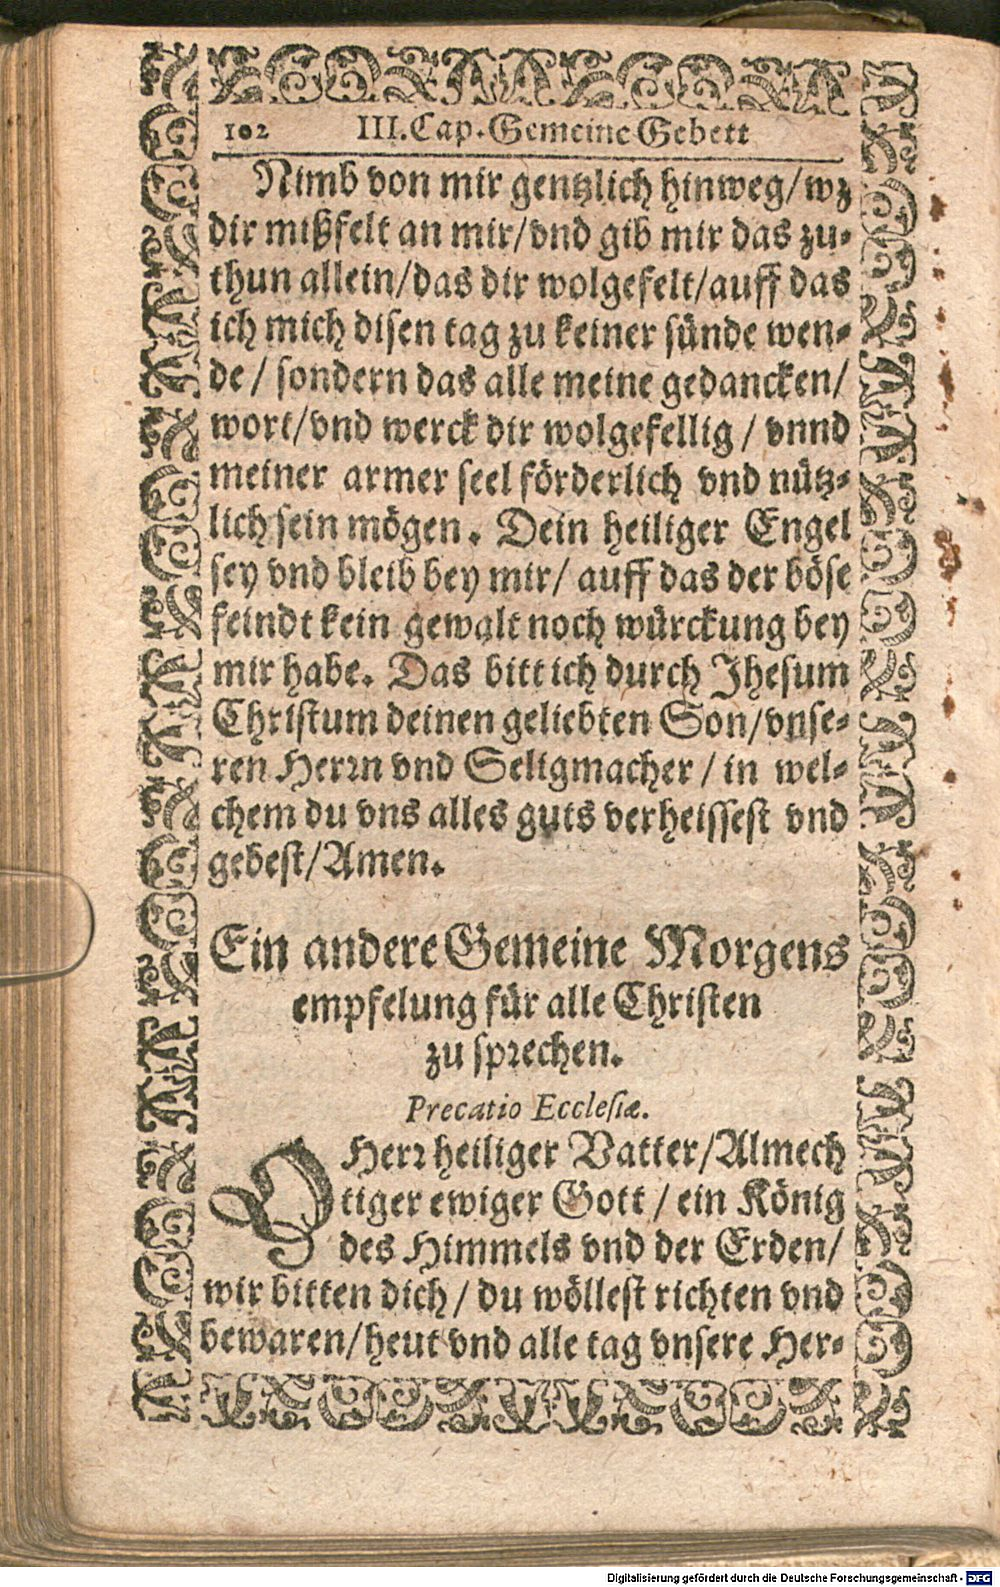 102 III. Cap. Gemeine Gebett
Nimb von mir gentzlich hinweg/ wz
dir mißfelt an mir/ vnd gib mir das zu-
thun allein/ das dir wolgefelt/ auff das
ich mich disen tag zu keiner sünde wen-
de/ sondern das alle meine gedancken/
wort/ vnd werck dir wolgefellig/ vnnd
meiner armer seel förderlich vnd nütz-
lich sein mögen. Dein heiliger Engel
sey vnd bleib bey mir/ auff das der böse
feindt kein gewalt noch würckung bey
mir habe. Das bitt ich durch Jhesum
Christum deinen geliebten Son/ vnse-
ren Herrn vnd Seligmacher/ in wel-
chem du vns alles guts verheissest vnd
gebest/ Amen.
Ein andere Gemeine Morgens
empfelung für alle Christen
zu sprechen.
Precatio Ecclesiæ.
O Herr heiliger Vatter/ Almech
tiger ewiger Gott/ ein König
des Himmels vnd der Erden/
wir bitten dich/ du wöllest richten vnd
bewaren/ heut vnd alle tag vnsere Her-
Digitalisierung gefördert durch die Deutsche Forschungsgemeinschaft - DFG